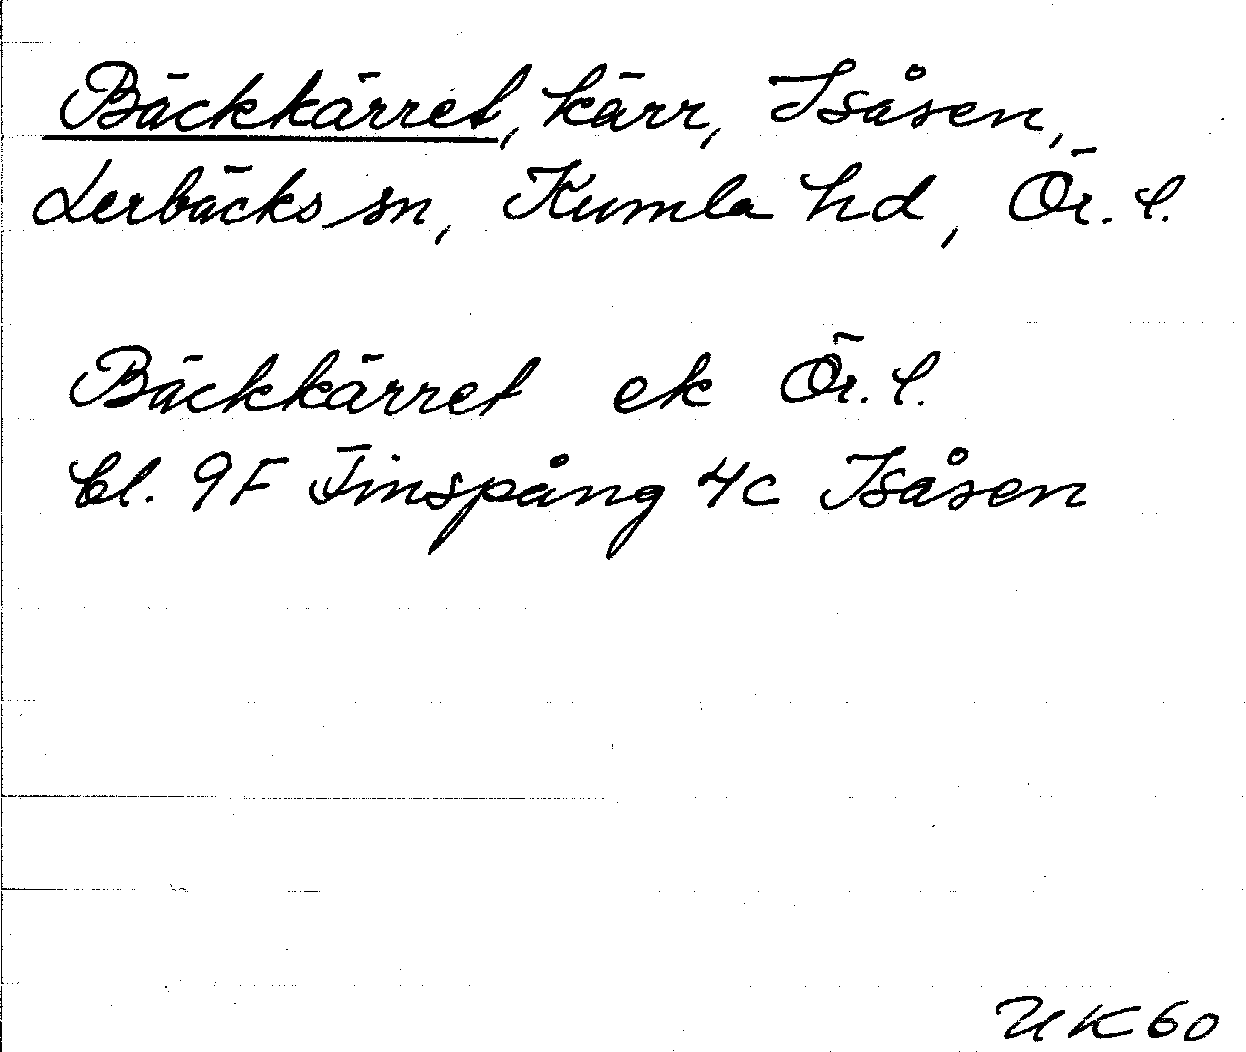 Bäckkärret, kärr, Isåsen,
Lerbäcks sn, Kumla hd, Ör. l.
Bäckkärret ek Ör. l.
bl. 9F Finspång 4c Isåsen
UK60